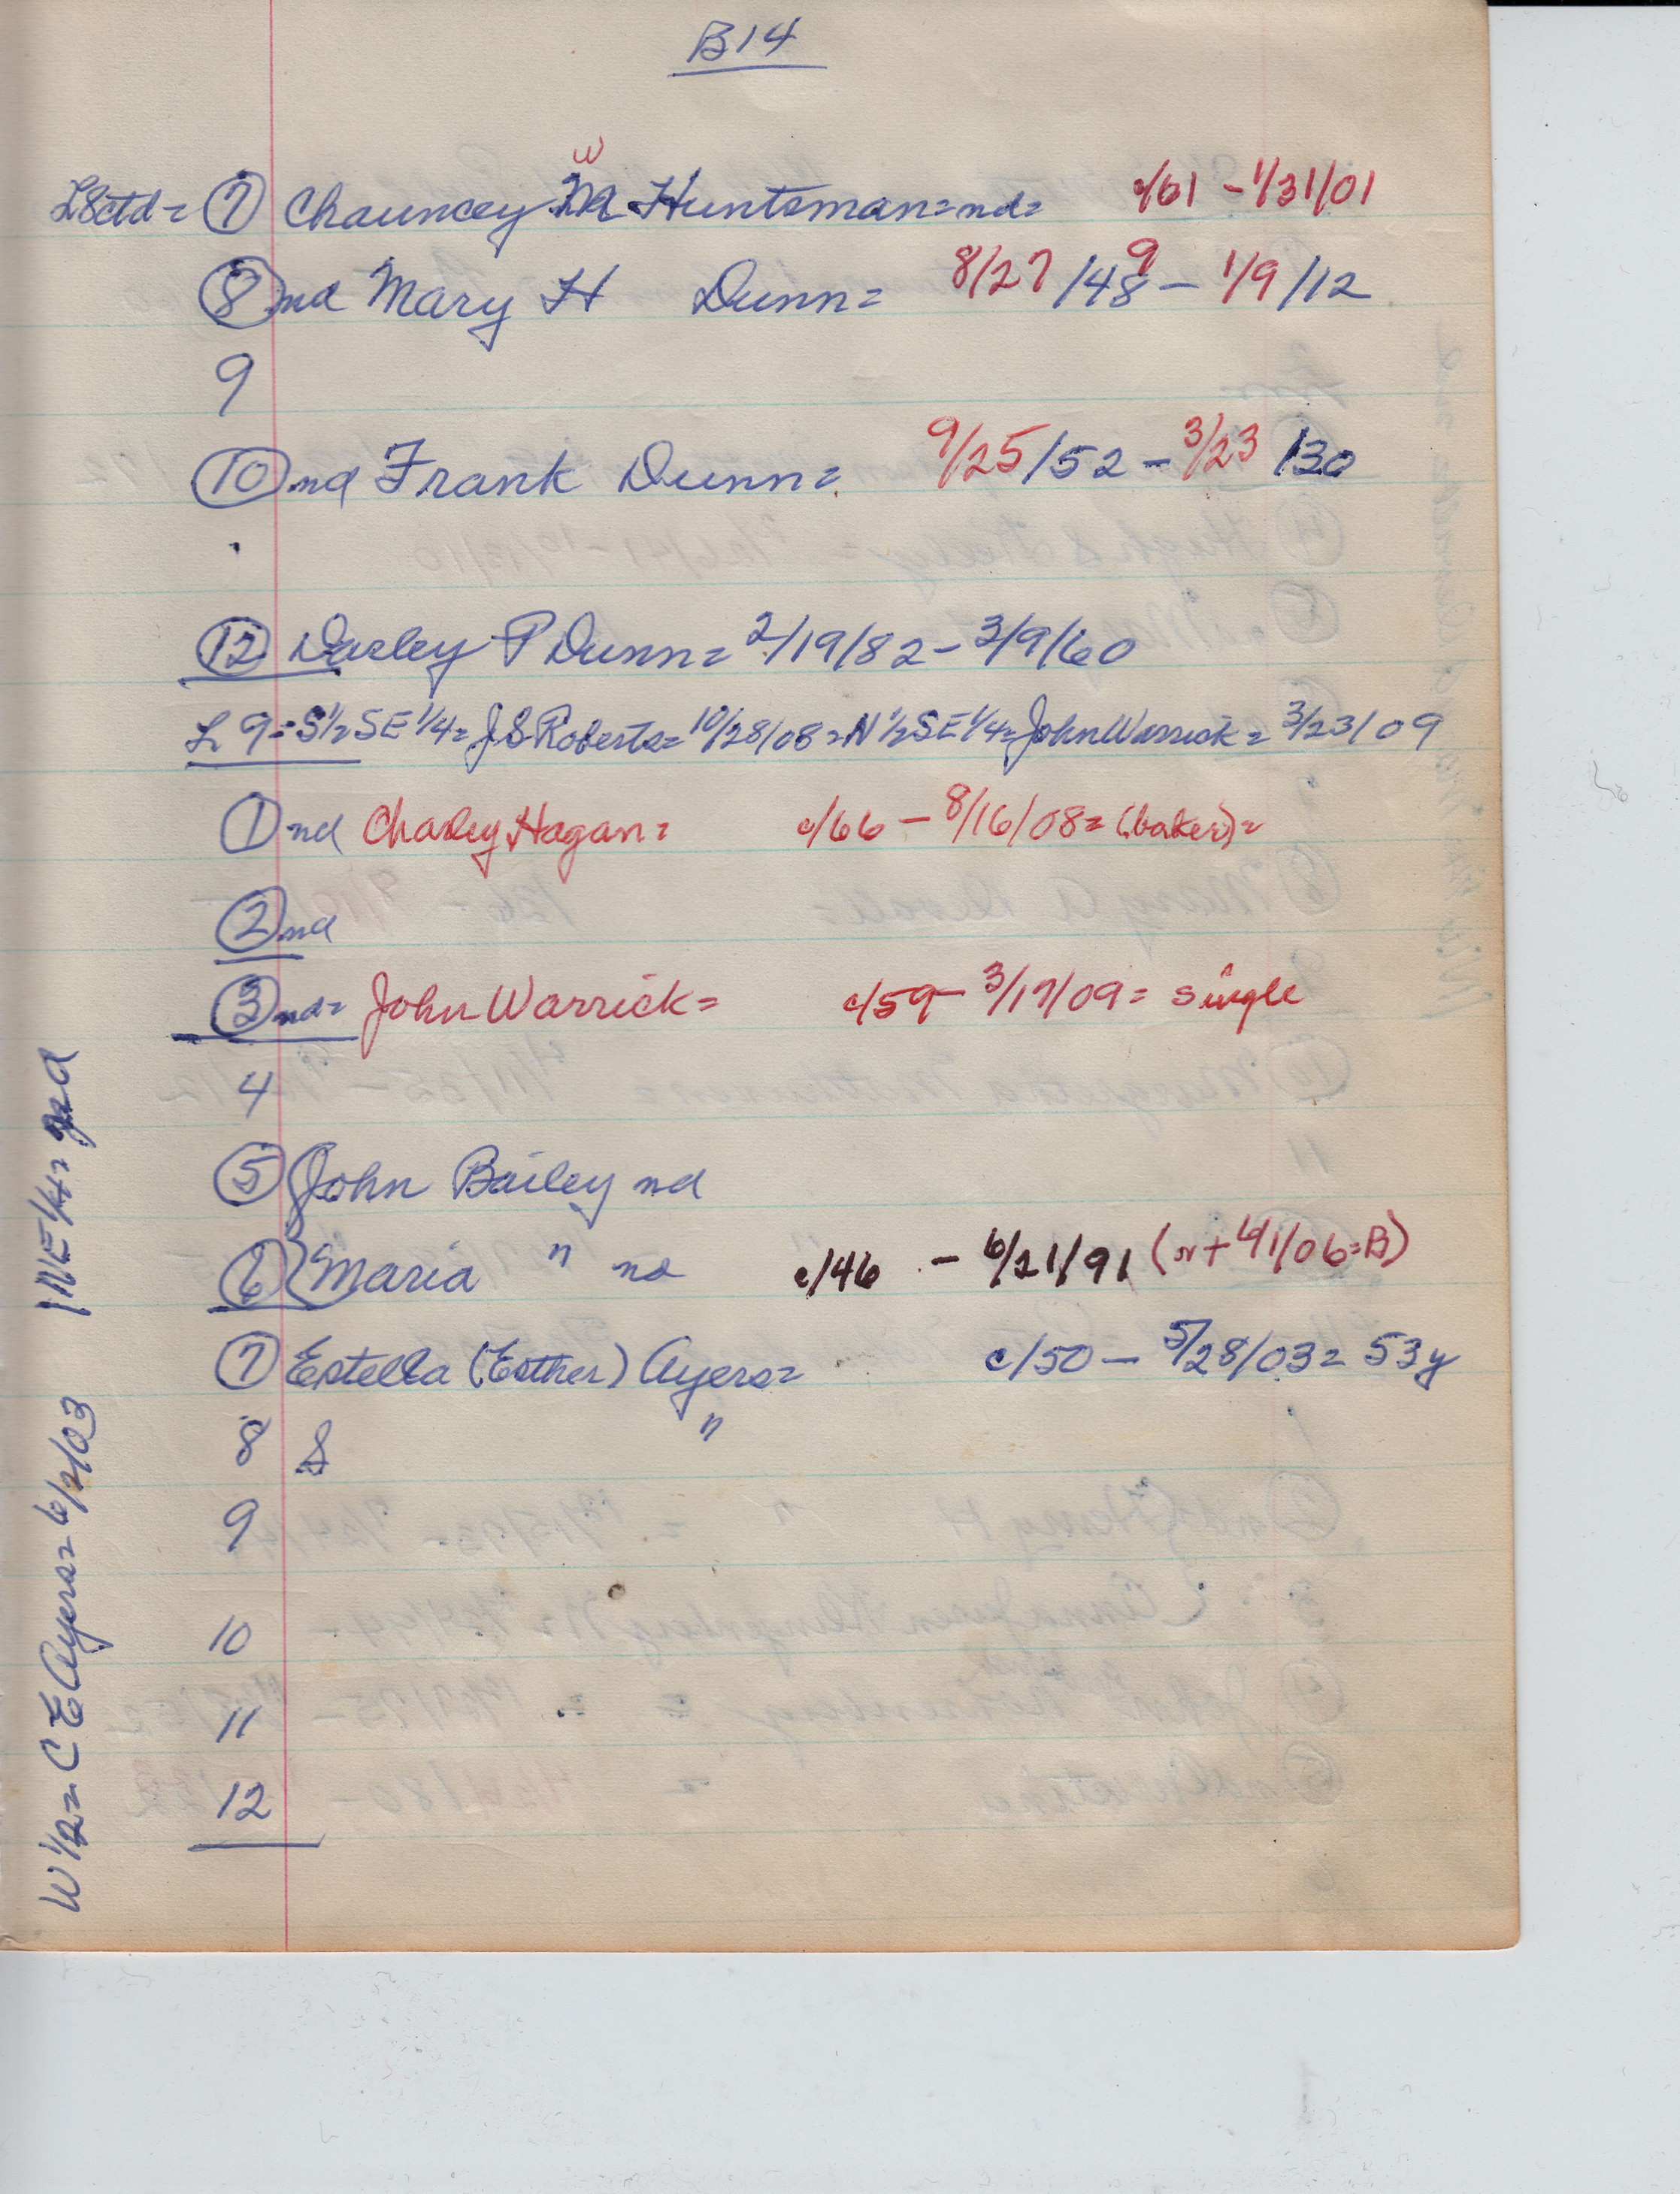 B14
L8ctd = 7 Chauncey M W Huntsman = nd = c/61 - 1/31/01
8 nd Mary H Dunn = 8/27/48 9 - 1/9/12
9
10 nd Frank Dunn = 9/25/52 - 3/23/30
12 Darley P Dunn = 2/19/82 - 3/9/60
L 9 = S 1/2 SE 1/4 = J S Roberts = 10/28/08 = N 1/2 SE 1/4 = John Warrick = 3/23/09
1 nd Charley Hagan = c/66 - 8/16/08 = (baker) =
2 nd
3 nd = John Warrick = c/59 - 3/17/09 = single
4
5 John Bailey nd
6 Maria " nd c/46 - 6/21/91 (r + 6/1/06 = B)
7 Estella (Esther) Ayers = c/50 - 5/28/03 = 53y
8 S "
9
10
11
12
W 1/2 = C E Ayers = 6/2/03 NE 1/4 =